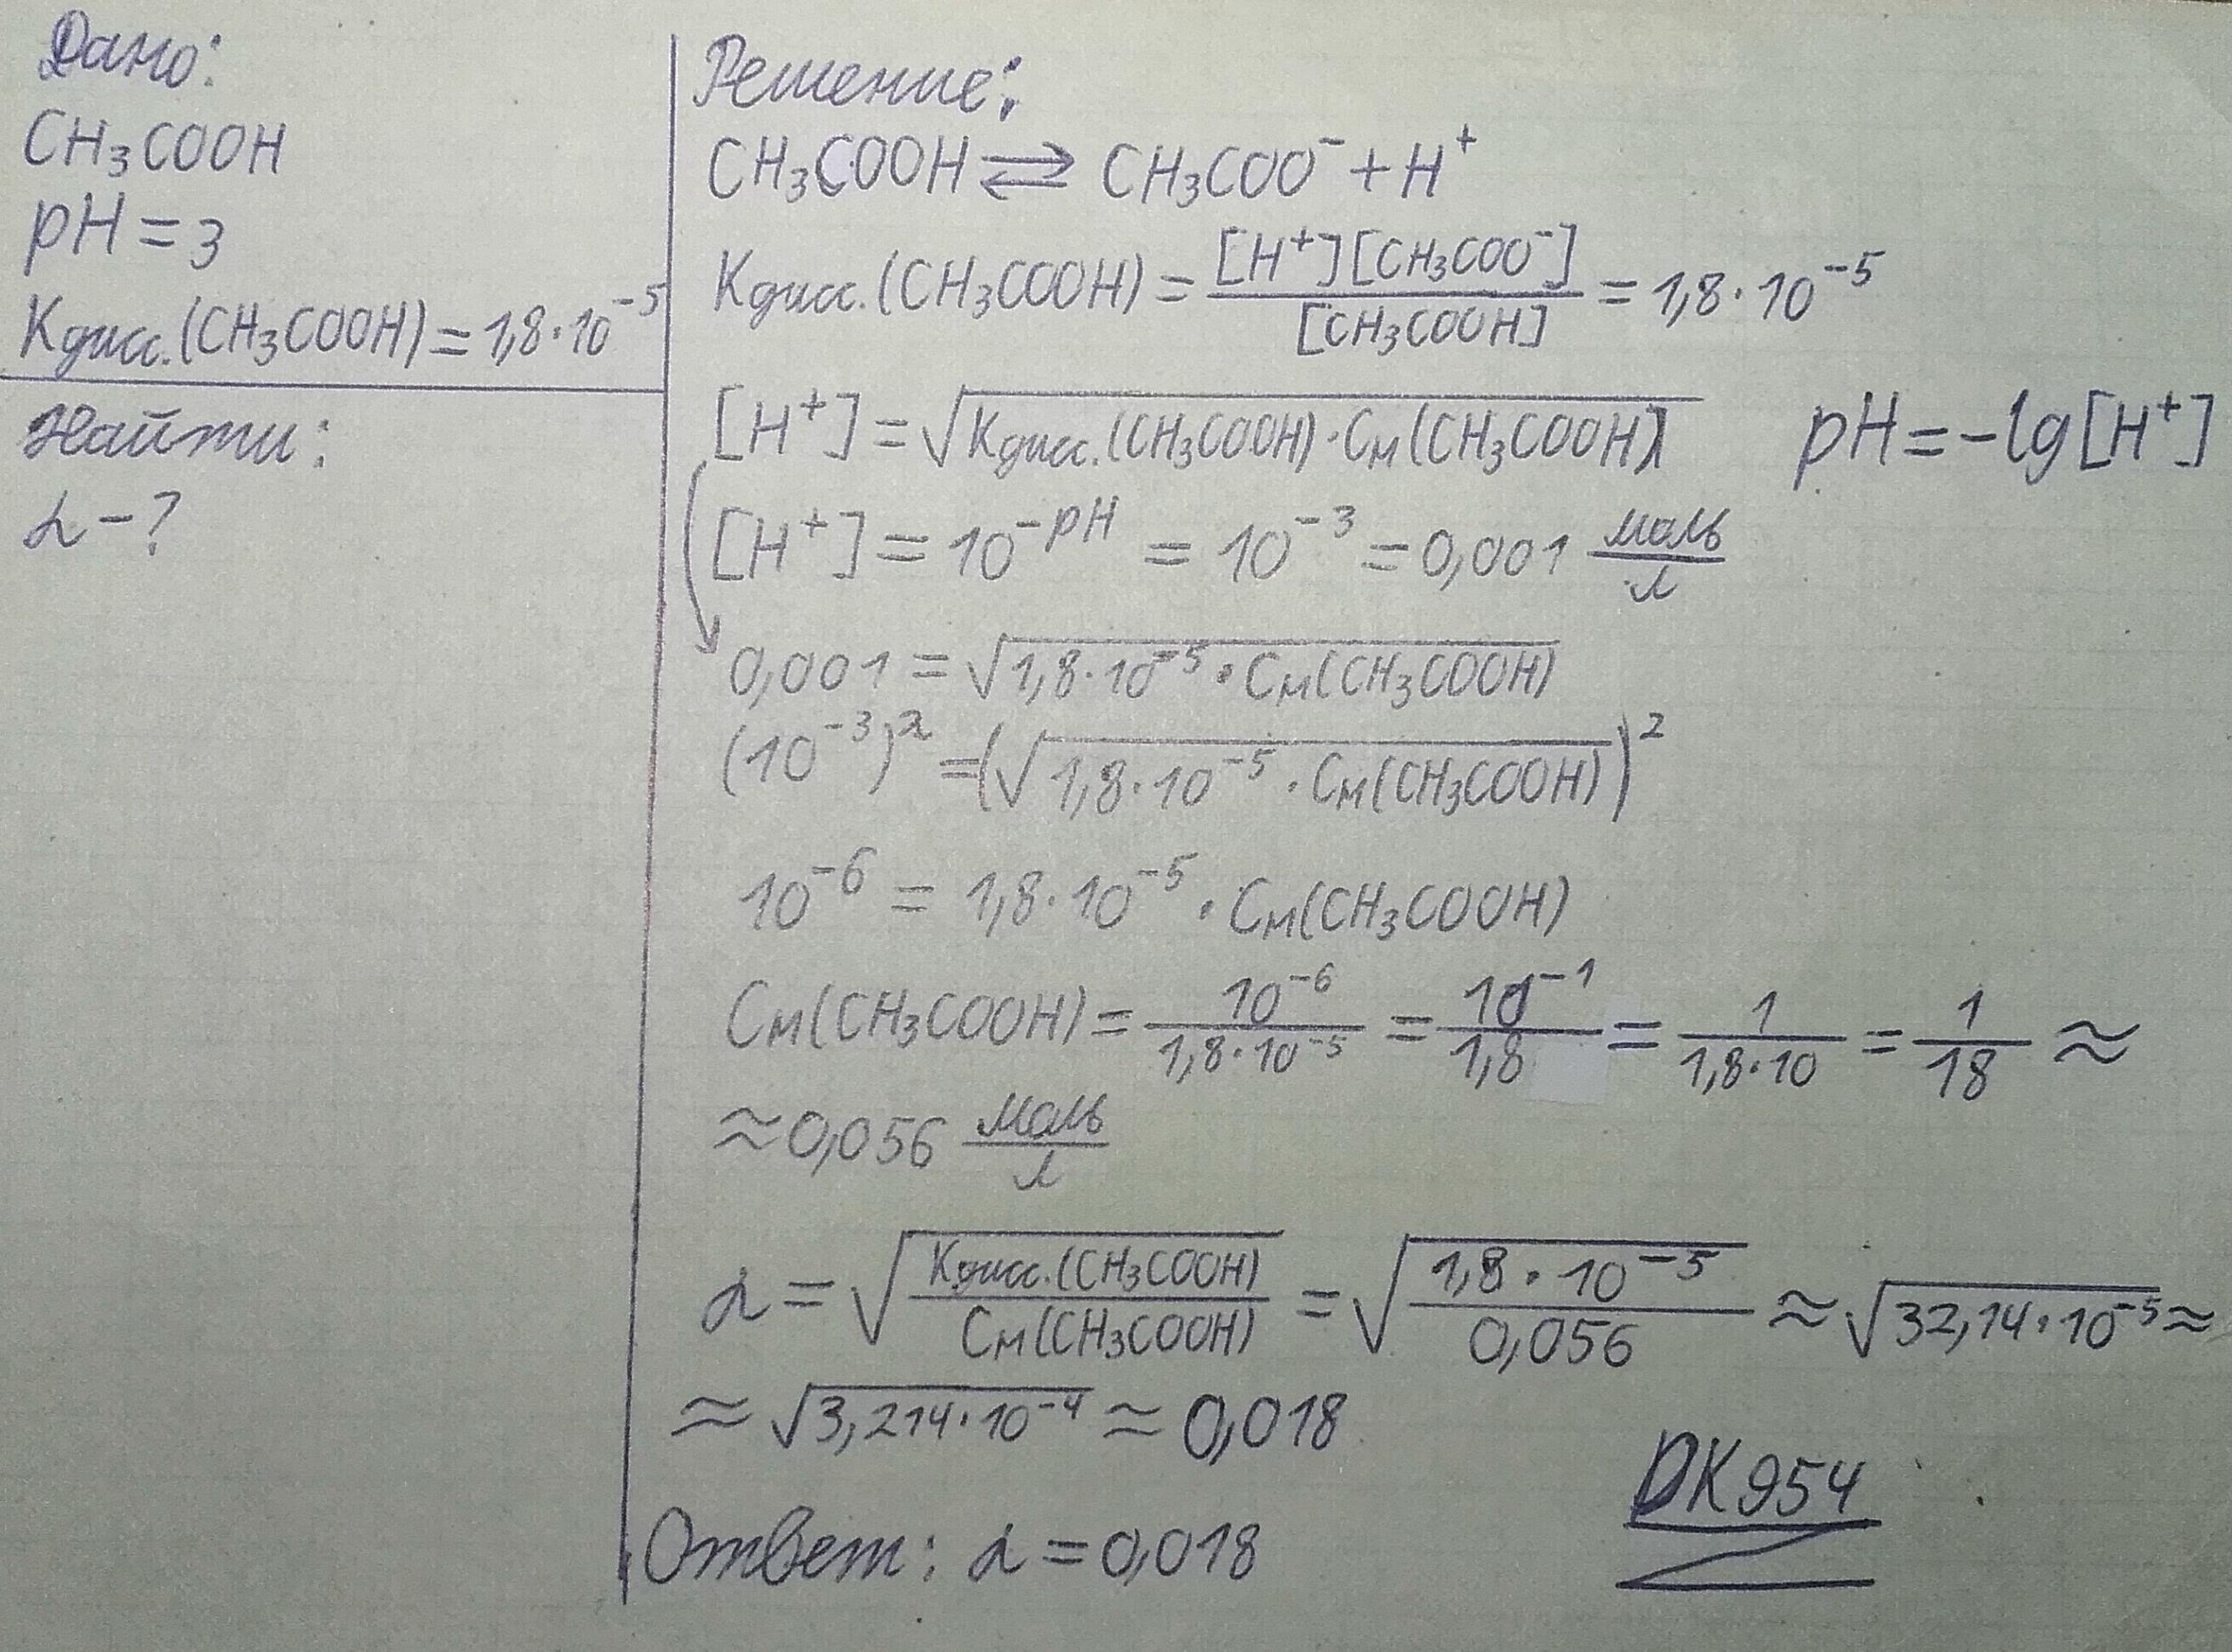 Дано:
CH₃COOH
pH = 3
Kдисс.(CH₃COOH) = 1,8·10⁻⁵
Найти:
α - ?
Решение:
CH₃COOH ⇄ CH₃COO⁻ + H⁺
Kдисс.(CH₃COOH) = [H⁺][CH₃COO⁻] / [CH₃COOH] = 1,8·10⁻⁵
[H⁺] = √(Kдисс.(CH₃COOH)·Cм(CH₃COOH)) pH = -lg[H⁺]
[H⁺] = 10^(-pH) = 10⁻³ = 0,001 моль/л
0,001 = √(1,8·10⁻⁵·Cм(CH₃COOH))
(10⁻³)² = (√(1,8·10⁻⁵·Cм(CH₃COOH)))²
10⁻⁶ = 1,8·10⁻⁵·Cм(CH₃COOH)
Cм(CH₃COOH) = 10⁻⁶ / 1,8·10⁻⁵ = 10⁻¹ / 1,8 = 1 / 1,8·10 = 1 / 18 ≈
≈ 0,056 моль/л
α = √(Kдисс.(CH₃COOH) / Cм(CH₃COOH)) = √(1,8·10⁻⁵ / 0,056) ≈ √(32,14·10⁻⁵) ≈
≈ √(3,214·10⁻⁴) ≈ 0,018
Ответ: α = 0,018
DK954